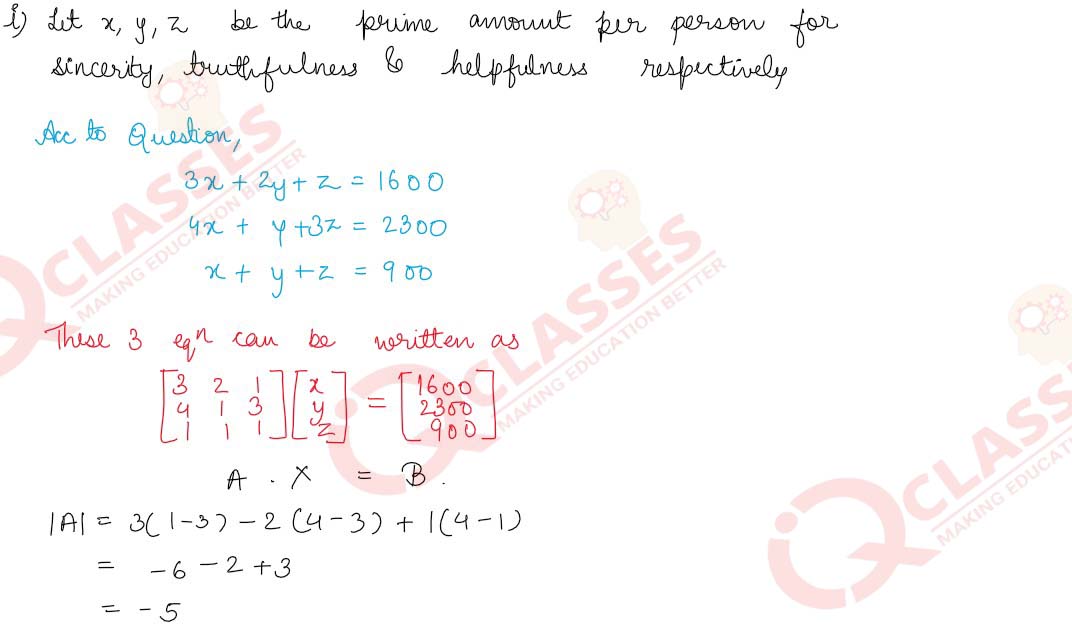 i) Let x, y, z be the prime amount per person for
sincerity, truthfulness & helpfulness respectively
Acc to Question,
3x + 2y + z = 1600
4x + y + 3z = 2300
x + y + z = 900
These 3 eqⁿ can be written as
[3 2 1] [x] = [1600]
[4 1 3] [y] = [2300]
[1 1 1] [z] = [900]
A . X = B.
|A| = 3(1-3) - 2 (4-3) + 1(4-1)
= -6 - 2 + 3
= - 5
IQ CLASSES
MAKING EDUCATION BETTER
IQ CLASSES
MAKING EDUCATION BETTER
IQ CLASSES
MAKING EDUCAT